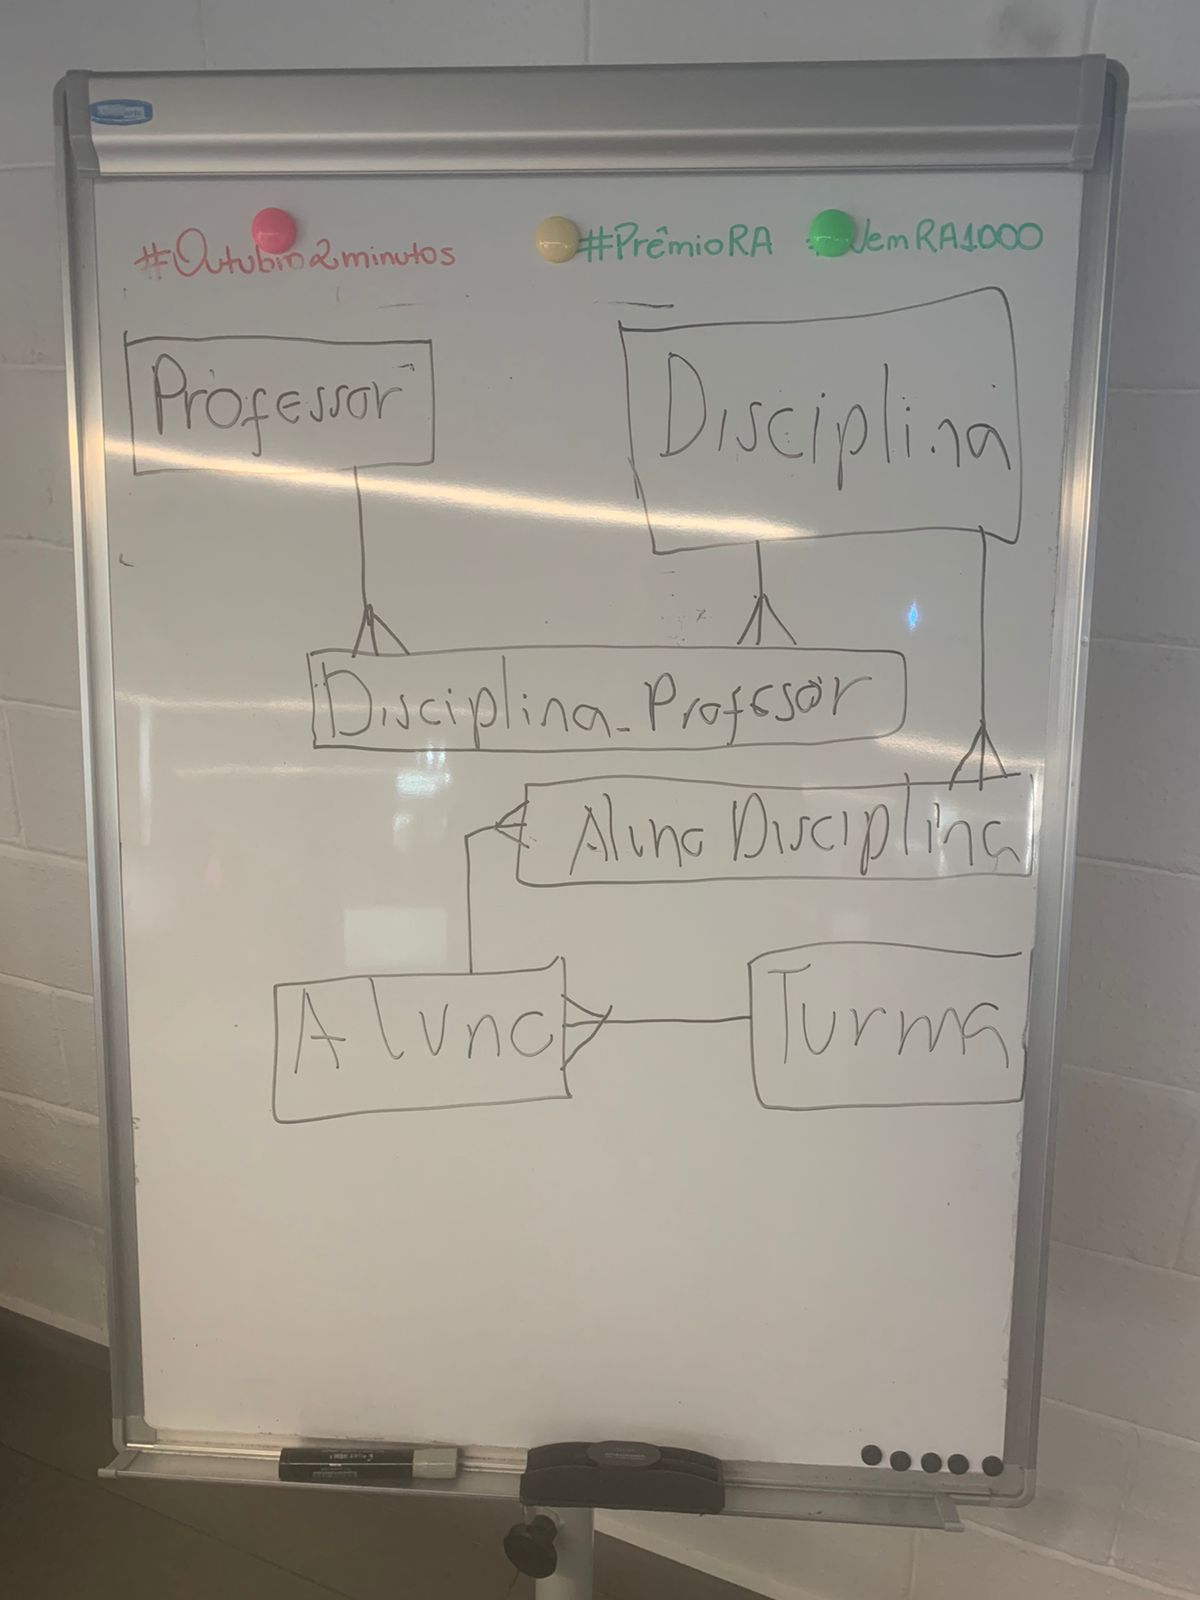 #Outubro2minutos #PrêmioRA #VemRA1000
Professor
Disciplina
Disciplina_Professor
Aluno Disciplina
Aluno
Turma